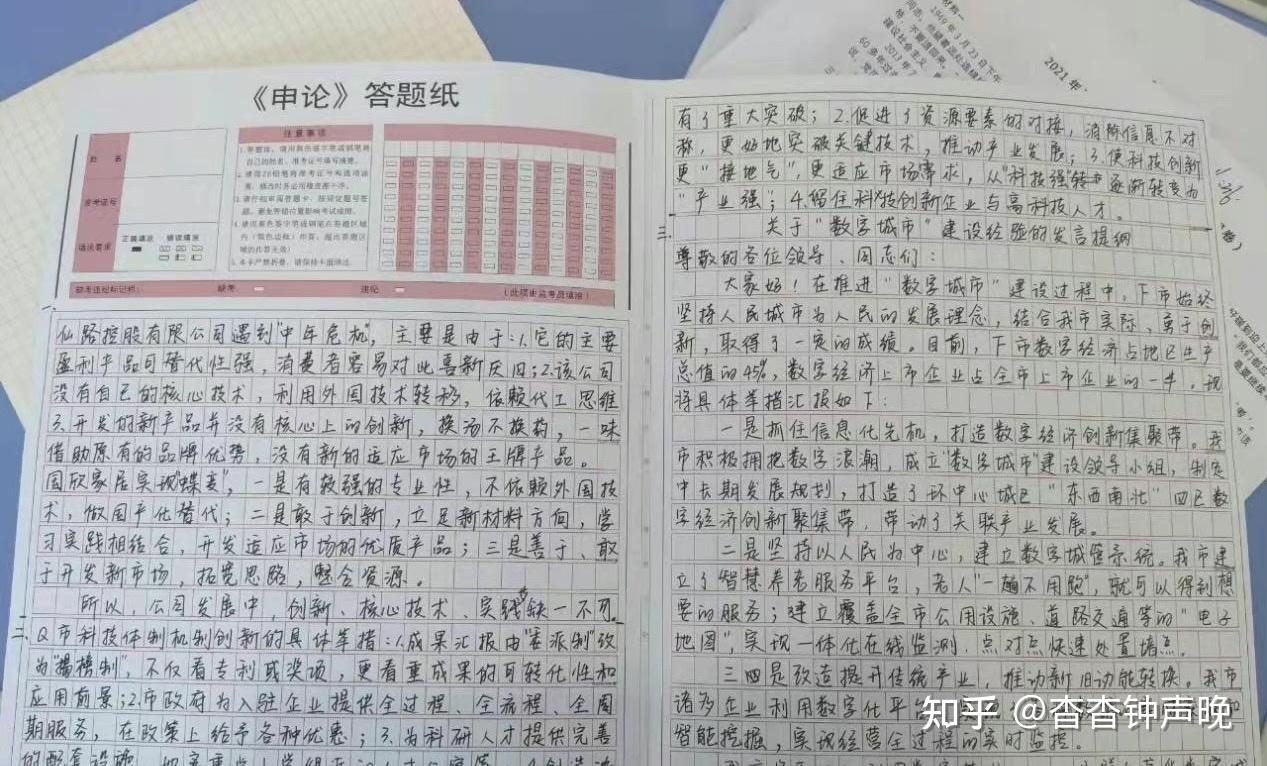 《申论》答题纸
注意事项
姓名
准考证号
填涂要求
正确填涂
错误填涂
缺考违纪标记栏：
缺考
违纪
（此项由监考员填涂）
一、
仙路控股有限公司遇到"中年危机"，主要是由于：1.它的主要
盈利产品可替代性强，消费者容易对此喜新厌旧；2.该公司
没有自己的核心技术，利用外国技术转移，依赖代工思维
3.开发的新产品并没有核心上的创新，换汤不换药，一味
借助原有的品牌优势，没有新的适应市场的王牌产品。
国欣家居实现"蝶变"，一是有较强的专业性，不依赖外国技
术，做国产化替代；二是敢于创新，立足新材料方向，学
习实践相结合，开发适应市场的优质产品；三是善于、敢
于开发新市场，拓宽思路，整合资源。
所以，公司发展中，创新、核心技术、实践缺一不可。
二、
Q市科技体制机制创新的具体举措：1.成果汇报由"委派制"改
为"揭榜制"，不仅看专利或奖项，更看重成果的可转化性和
应用前景；2.市政府为入驻企业提供全过程、全流程、全周
期服务，在政策上给予各种优惠；3.为科研人才提供完善
的配套设施
有了重大突破；2.促进了资源要素的对接，消除信息不对
称，更好地突破关键技术，推动产业发展；3.使科技创新
更"接地气"，更适应市场需求，从"科技强"逐渐转变为
"产业强；4.留住科技创新企业与高科技人才。
三、
关于"数字城市"建设经验的发言提纲
尊敬的各位领导、同志们：
大家好！在推进"数字城市"建设过程中，下市始终
坚持人民城市为人民的发展理念，结合我市实际，勇于创
新，取得了一定的成绩。目前，下市数字经济占地区生产
总值的45%，数字经济上市企业占全市上市企业的一半。现
将具体举措汇报如下：
一是抓住信息化先机，打造数字经济创新集聚带。我
市积极拥抱数字浪潮，成立"数字城市"建设领导小组，制定
中长期发展规划，打造了环中心城区"东西南北"四区数
字经济创新聚集带，带动了关联产业发展。
二是坚持以人民为中心，建立数字城管系统。我市建
立了智慧养老服务平台，老人"一趟不用跑"，就可以得到想
要的服务；建立覆盖全市公用设施、道路交通等的"电子
地图"，实现一体化在线监测、点对点快速处置堵点。
三四是改造提升传统产业，推动新旧动能转换。我市
诸多企业利用数字化平台
智能挖掘，实现经营全过程的实时监控。
2021年
材料一
1949年3月23日下午
知乎 @杳杳钟声晚